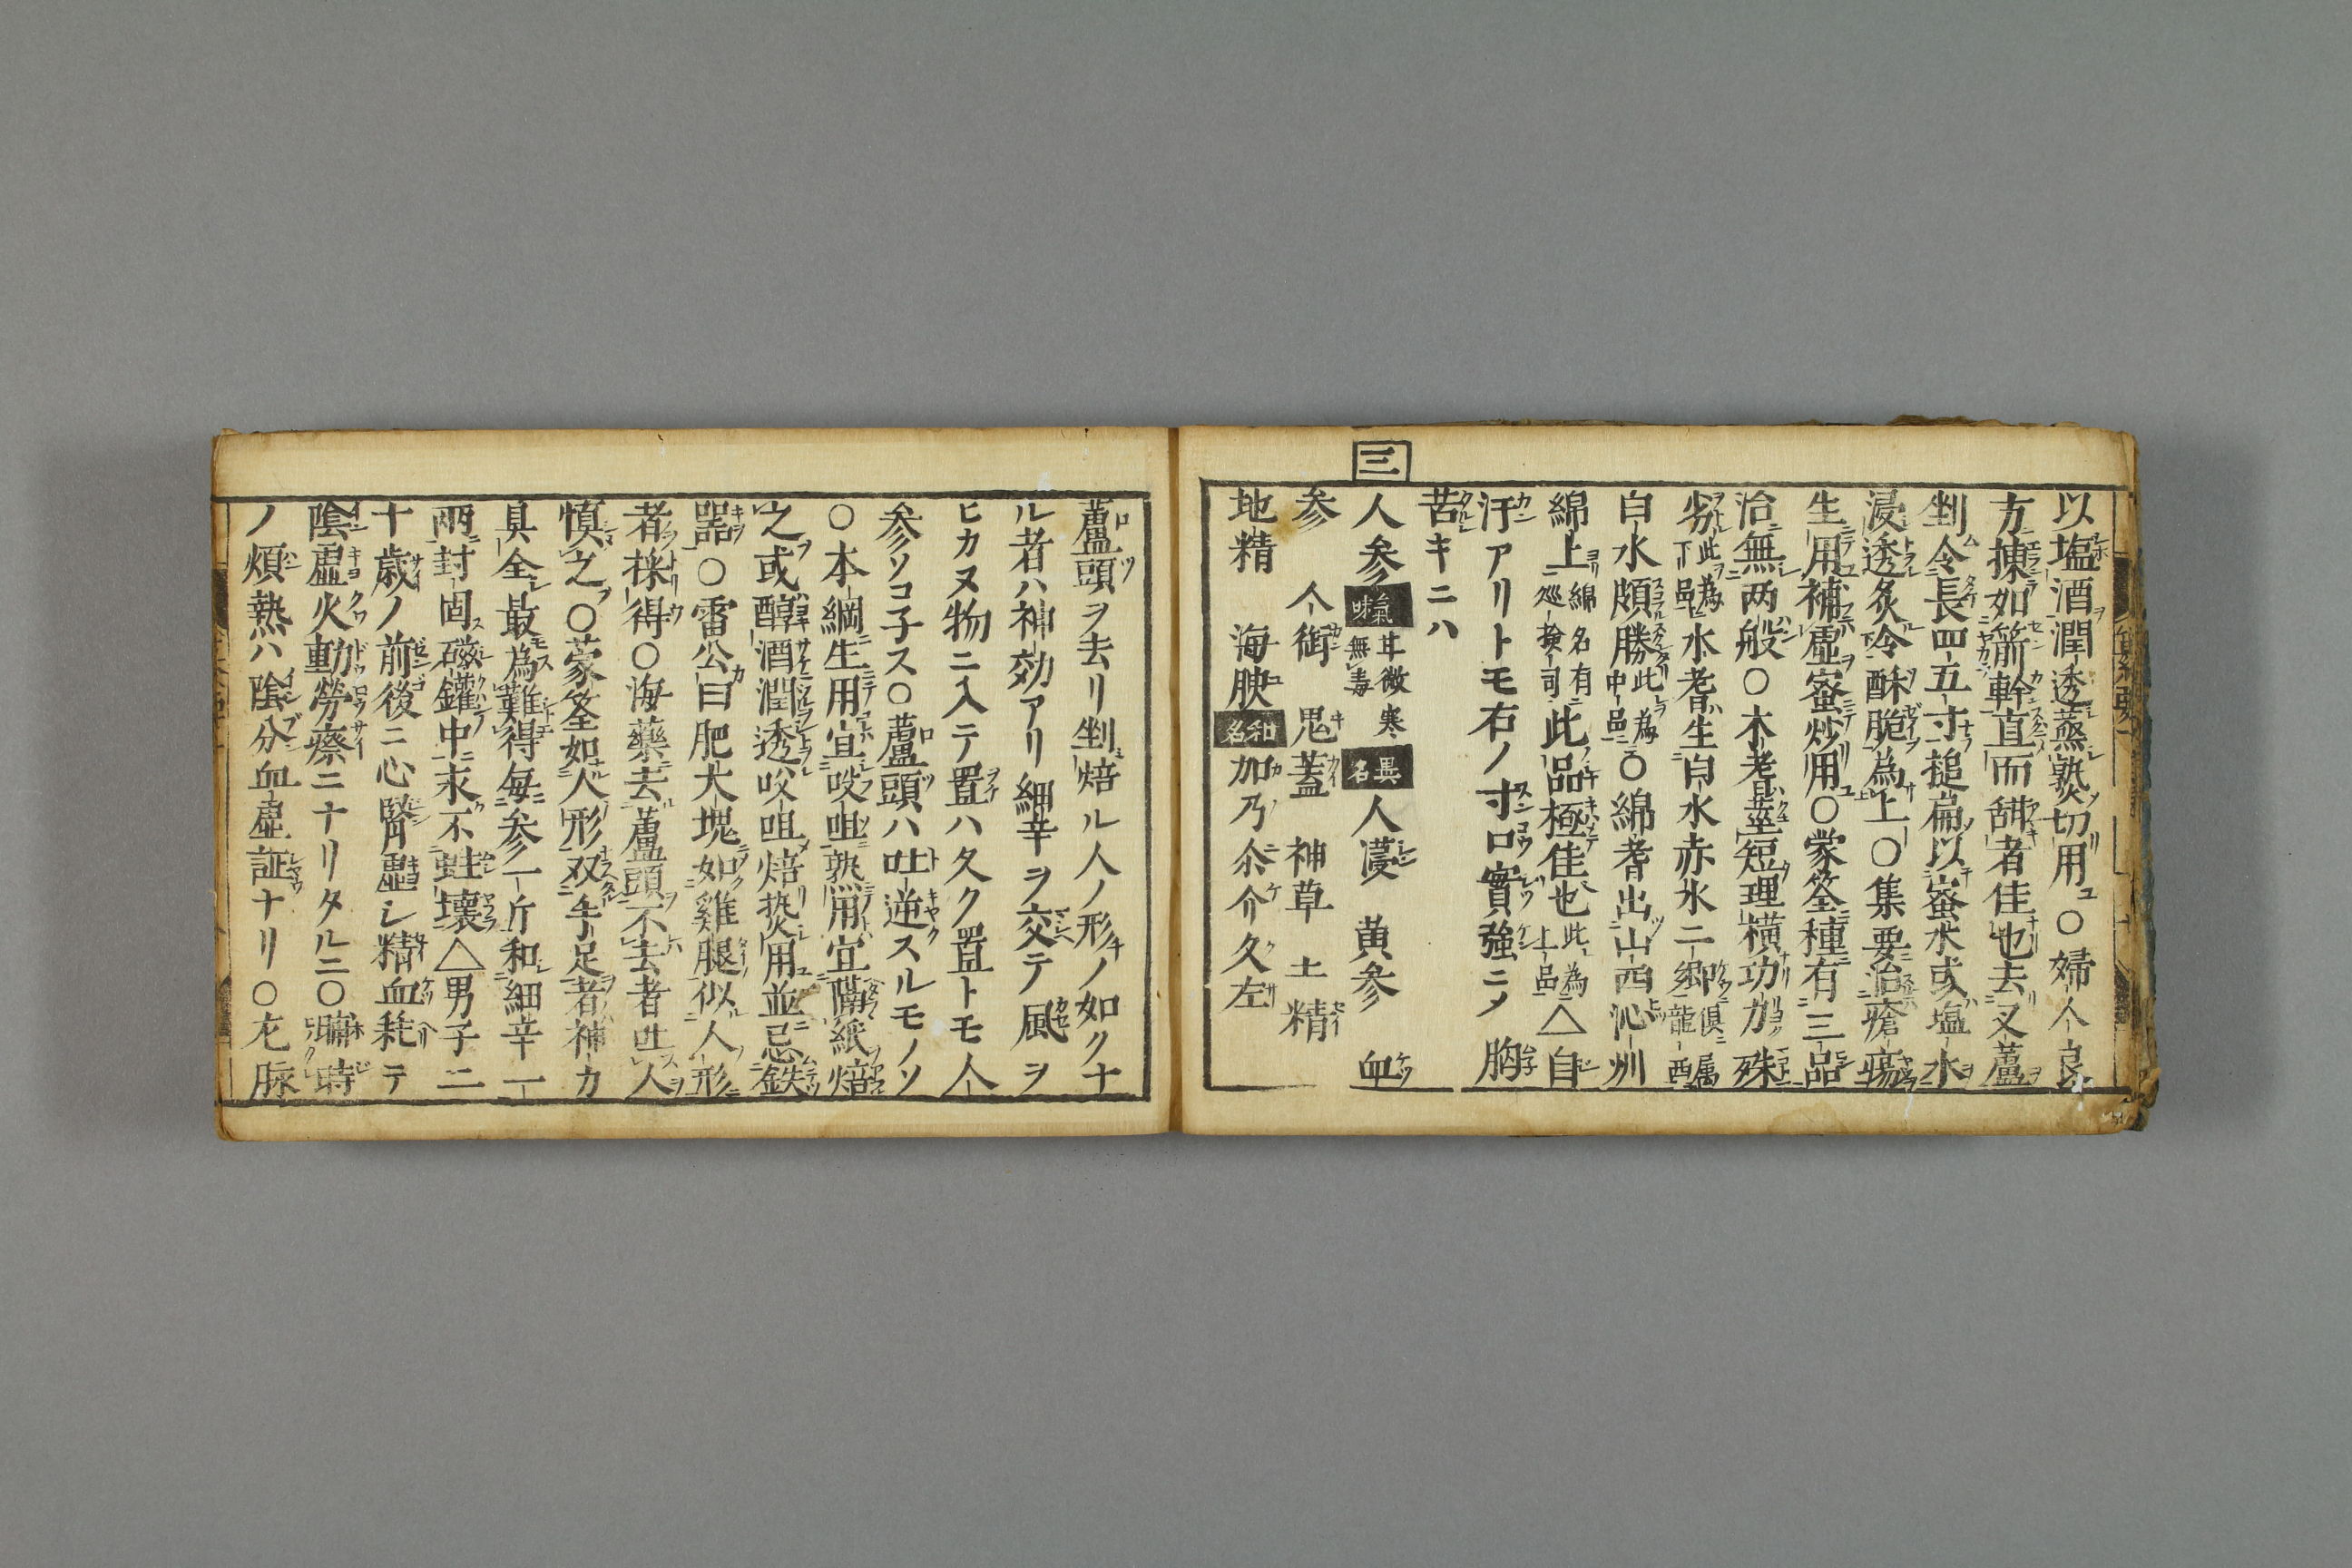 以塩酒潤透蒸熟切用ユ○婦人良
方揀如箭幹直而甜者佳也去叉蘆
剉令長四五寸搥扁以蜜水或塩水
浸透炙令酥脆為上○集要治瘡瘍
生用補虚蜜炒用○蒙筌種有三品
治無两般○木耆莖短理横功力殊
劣此為下品水耆生白水赤水二郷俱属隴西
白水頗勝此為中品○綿耆出山西沁州
綿上綿上地名有巡撿司此品極佳也此為上品△自
汗アリトモ右ノ寸口實強ニメ胸
苦キニハ
三
人参 氣味 甘微寒無毒 異名 人薓 黄参 血
参 人銜 鬼蓋 神草 土精
地精 海腴 和名 加乃尒介久左
蘆頭ヲ去リ剉焙ル人ノ形ノ如クナ
ル者ハ神効アリ細辛ヲ交テ風ヲ
ヒカヌ物ニ入テ置ハ久ク置トモ人
参ソコ子ス○蘆頭ハ吐逆スルモノソ
○本綱生用宜㕮咀熟用宜隔紙焙
之或醇酒潤透㕮咀焙熟用並忌鉄
器○雷公曰肥大塊如雞腿似人形
者採得○海藥去蘆頭不去者吐人
慎之○蒙筌如人形双手足者神力
具全最為難得毎参一斤和細辛一
兩封固磁鑵中永不蛀壞△男子二
十歳ノ前後ニ心腎虚シ精血耗テ
陰虚火動勞瘵ニナリタルニ○晡時
ノ煩熱ハ陰分血虚証ナリ○左脉